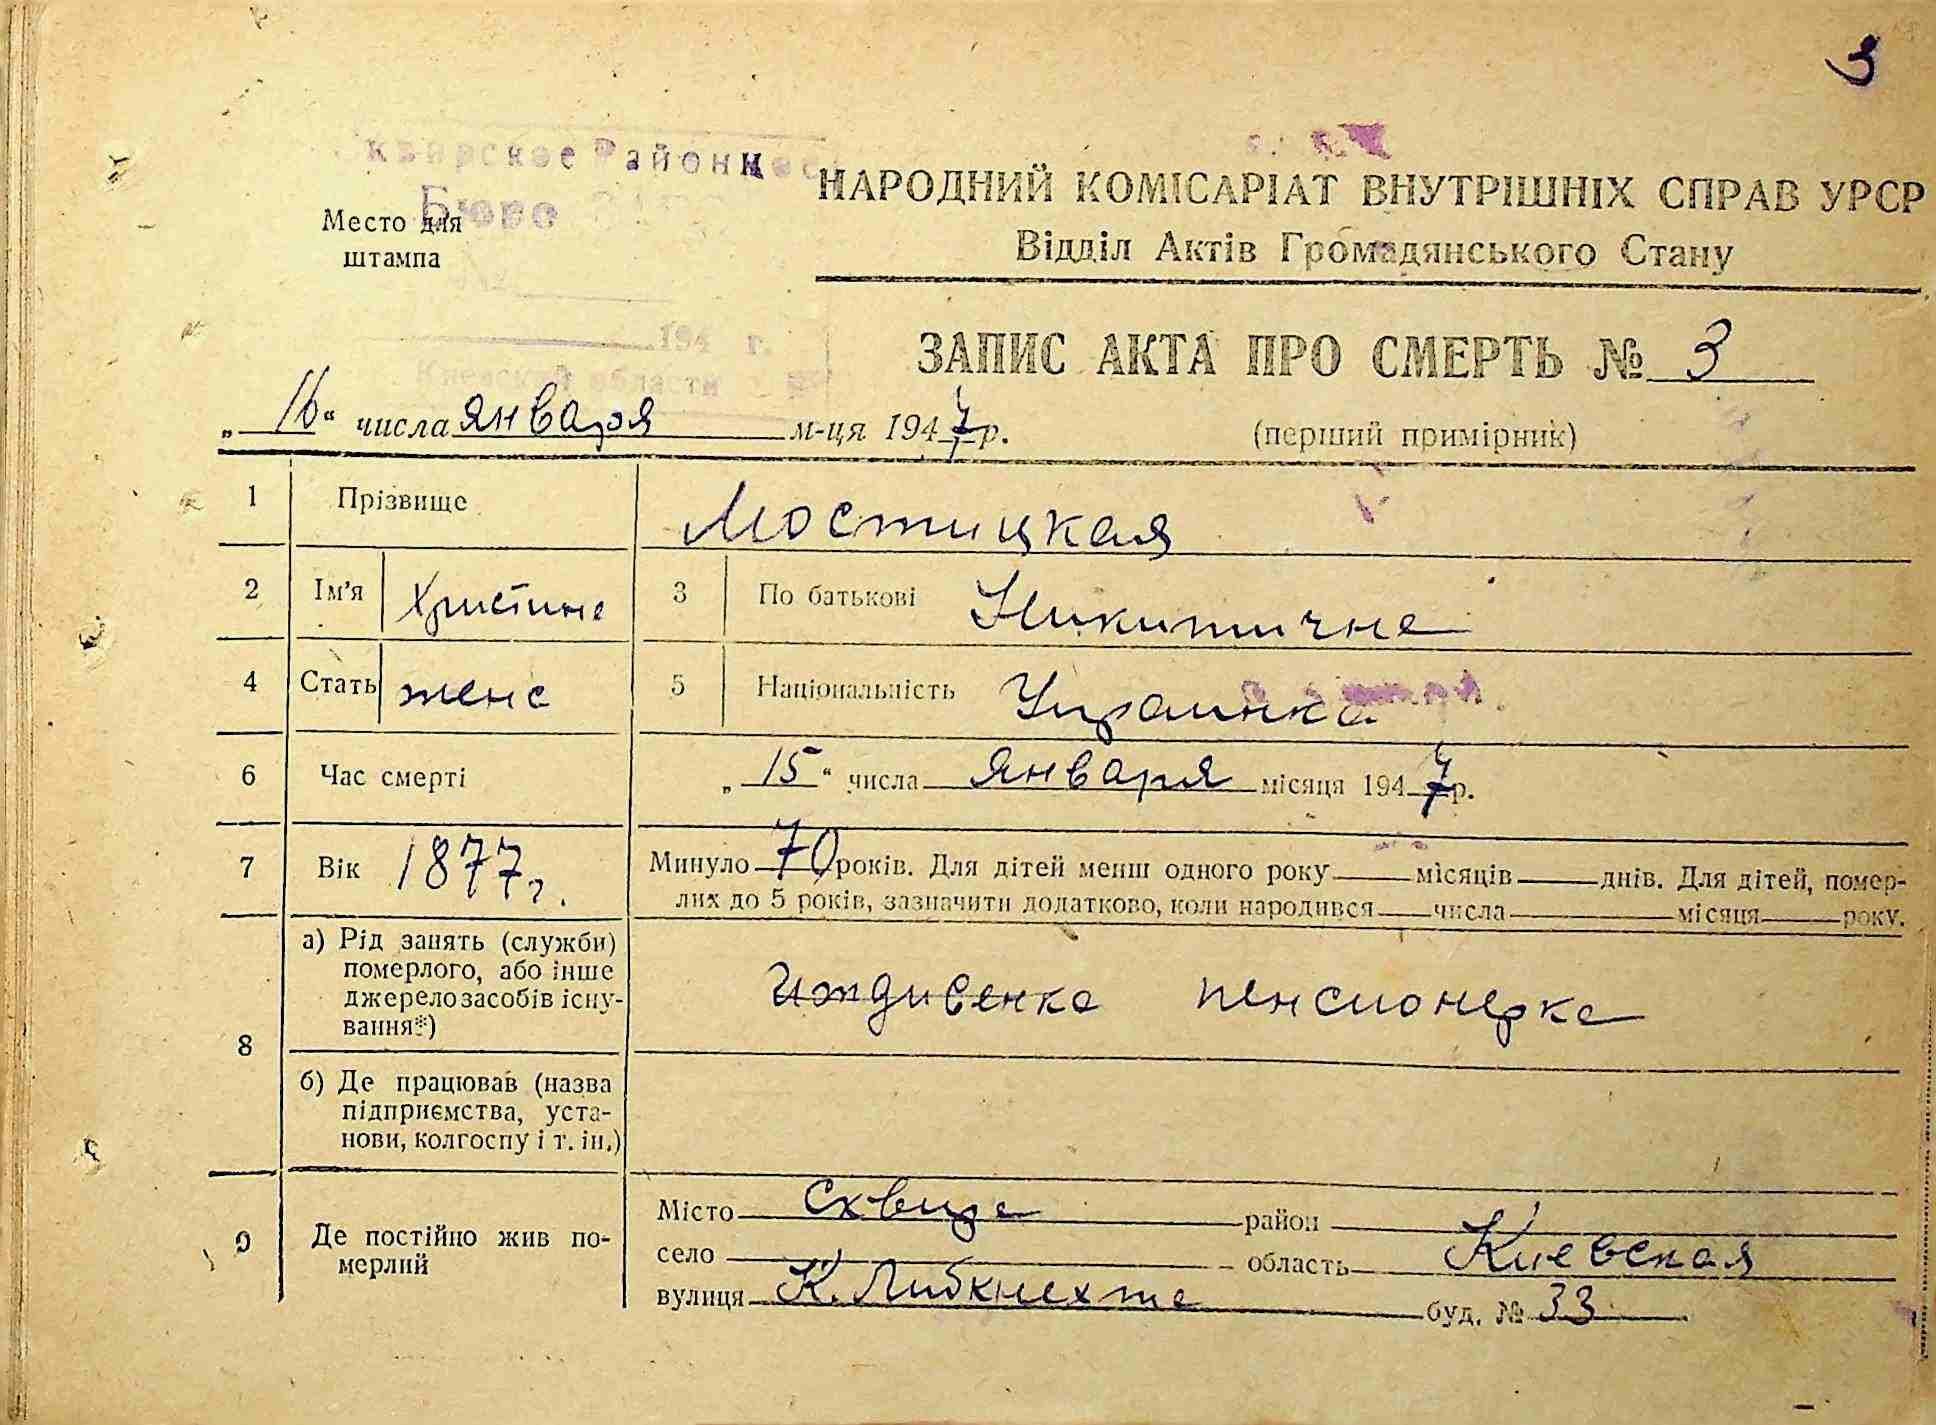 3
Сквирское Районное
Бюро ЗАГС
Место для
штампа
194 г.
Киевской области
НАРОДНИЙ КОМІСАРІАТ ВНУТРІШНІХ СПРАВ УРСР
Відділ Актів Громадянського Стану
ЗАПИС АКТА ПРО СМЕРТЬ № 3
„16“ числа января м-ця 1947 р.
(перший примірник)
1 Прізвище Мостицкая
2 Ім'я Христина 3 По батькові Никитична
4 Стать женс 5 Національність Украинка
6 Час смерті „15“ числа января місяця 1947 р.
7 Вік 1877 г. Минуло 70 років. Для дітей менш одного року місяців днів. Для дітей, помер-
лих до 5 років, зазначити додатково, коли народився числа місяця року.
8 а) Рід занять (служби)
померлого, або інше
джерело засобів існу-
вання*)
иждивенка пенсионерка
б) Де працював (назва
підприємства, уста-
нови, колгоспу і т. ін.)
9 Де постійно жив по-
мерлий
Місто Сквира район
село область Киевская
вулиця К. Либкнехта буд. № 33